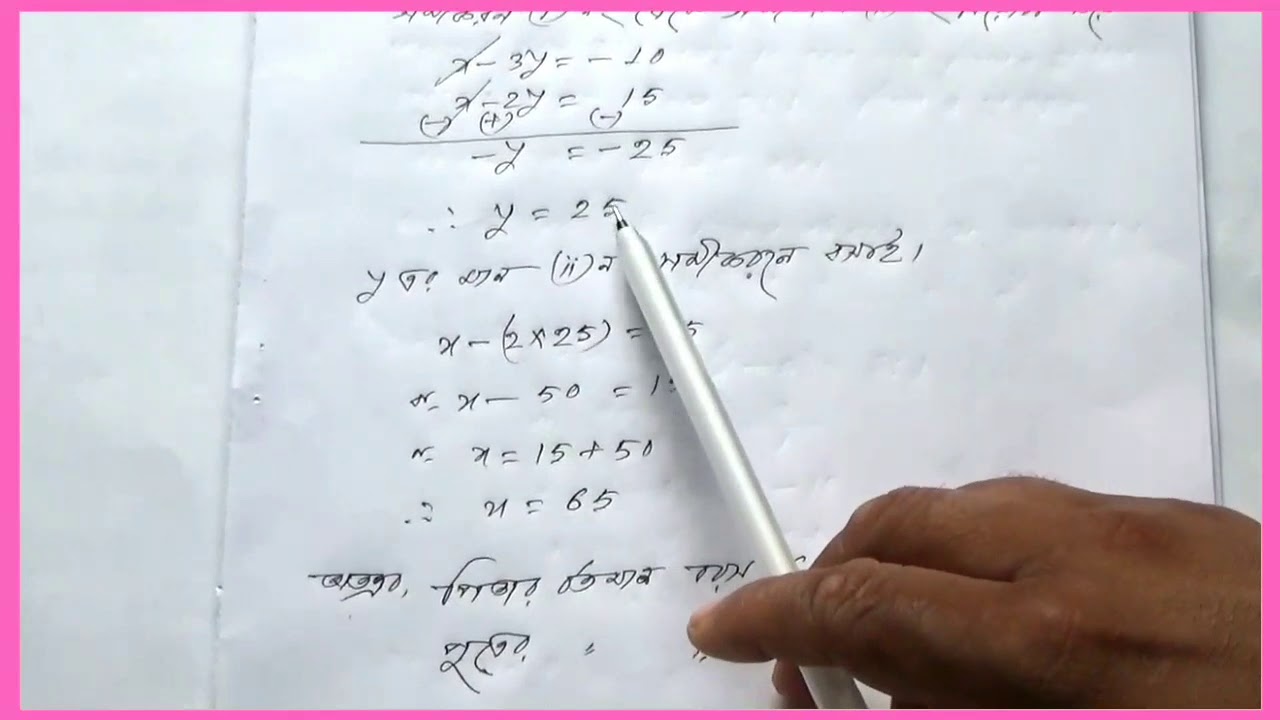 x - 3y = - 10
x - 2y = 15
(-) (+) (-)
- y = - 25
∴ y = 25
y এর মান (ii) ন সমীকরণে বসাই।
x - (2 × 25) = 5
বা x - 50 = 1
বা x = 15 + 50
∴ x = 65
অতএব, পিতার বর্তমান বয়স
পুত্রের "